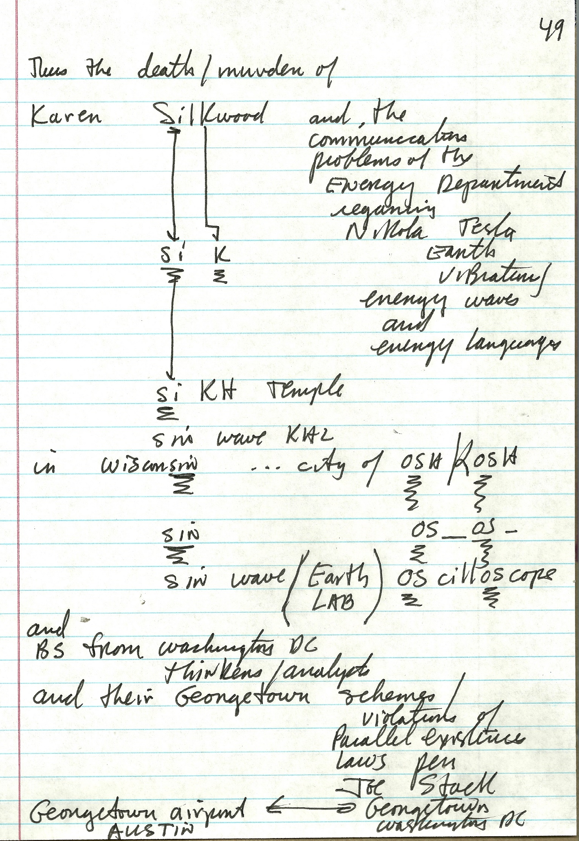 49
Thus the death/murder of
Karen Silkwood and, the
communication
problems of the
Energy Department
regarding
Nikola Tesla
Earth
vibrations/
energy waves
and
energy languages
Si K
Si KH Temple
sin wave KHZ
in wisconsin ... city of OSH/KOSH
sin OS _ OS -
sin wave (Earth LAB) OS cillOS cope
and
BS from washington DC
thinkers/analysts
and their Georgetown schemes/
violations of
Parallel existence
laws per
Joe Stack
Georgetown airport Georgetown
AUSTIN washington DC